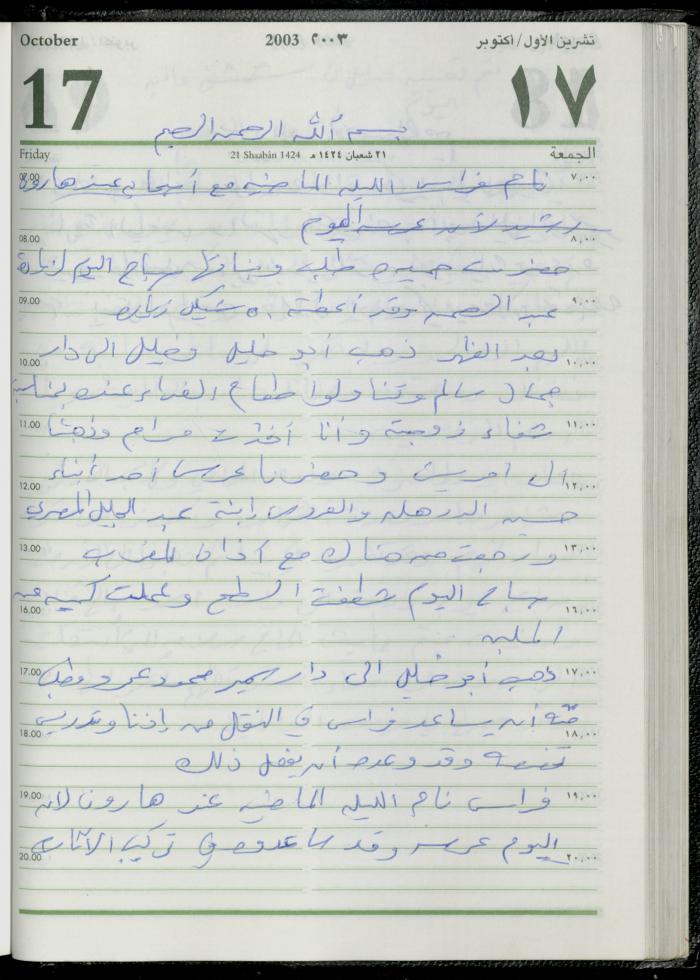 October 2003 ٢٠٠٣ تشرين الأول/أكتوبر
17 ١٧
بسم الله الرحمن الرحيم
Friday 21 Shaabân 1424 ٢١ شعبان ١٤٢٤ هـ الجمعة
07.00 نام فراس الليله الماضيه مع أصحابه عند هارون ٧,٠٠
رشيد لأنه عرسه اليوم
08.00 ٨,٠٠
حضرت حميده طلب وبناتها صباح اليوم لزيارة
09.00 عبد الرحمن وقد أعطته ٥٠ شيكل زياره ٩,٠٠
بعد الظهر ذهب أبو خليل وخليل الى دار
10.00 ١٠,٠٠
جمال سالم وتناولوا طعام الغداء عنده
11.00 شفاء زوجته وأنا أخذت مرام وذهبنا ١١,٠٠
ال وحضرنا عرس أحد أبناء
12.00 ١٢,٠٠
حسين والعروس ابنة عبد الجليل المصري
13.00 ورجعت من هناك مع اذان المغرب ١٣,٠٠
صباح اليوم شطفت السطح وعملت كميه من
16.00 ١٦,٠٠
الملبن
17.00 ذهب أبو خليل الى دار سمير محمود عمر وطلب ١٧,٠٠
منه أن يساعد فراس في النقل من إذنا وتدريس
18.00 ١٨,٠٠
تخصصه وقد وعده أن يفعل ذلك
19.00 فراس نام الليله الماضيه عند هارون لأنه ١٩,٠٠
اليوم عرسه وقد ساعدوه في تركيب الأثاث
20.00 ٢٠,٠٠